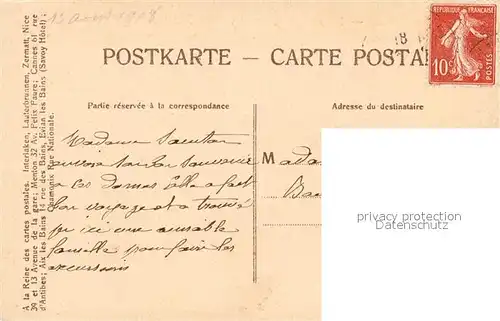 13 août 1908
POSTKARTE — CARTE POSTA
18
RÉPUBLIQUE FRANÇAISE
10c
POSTES
Partie réservée à la correspondance
Adresse du destinataire
A la Reine des cartes postales. Interlaken, Lauterbrunnen, Zermatt, Nice
39 et 13 Avenue de la gare; Menton 32 Av. Felix Faure; Cannes 61 rue
d'Antibes; Aix les Bains 14 rue des Bains, Evian les Bains (Savoy Hôtel);
Chamonix Rue Nationale.
Madame
envoie son bon souvenir
a ces dames Elle a fait
bon voyage et a trouvé
ici une aimable
famille pour faire les
excursions
Mada
privacy protection
Datenschutz